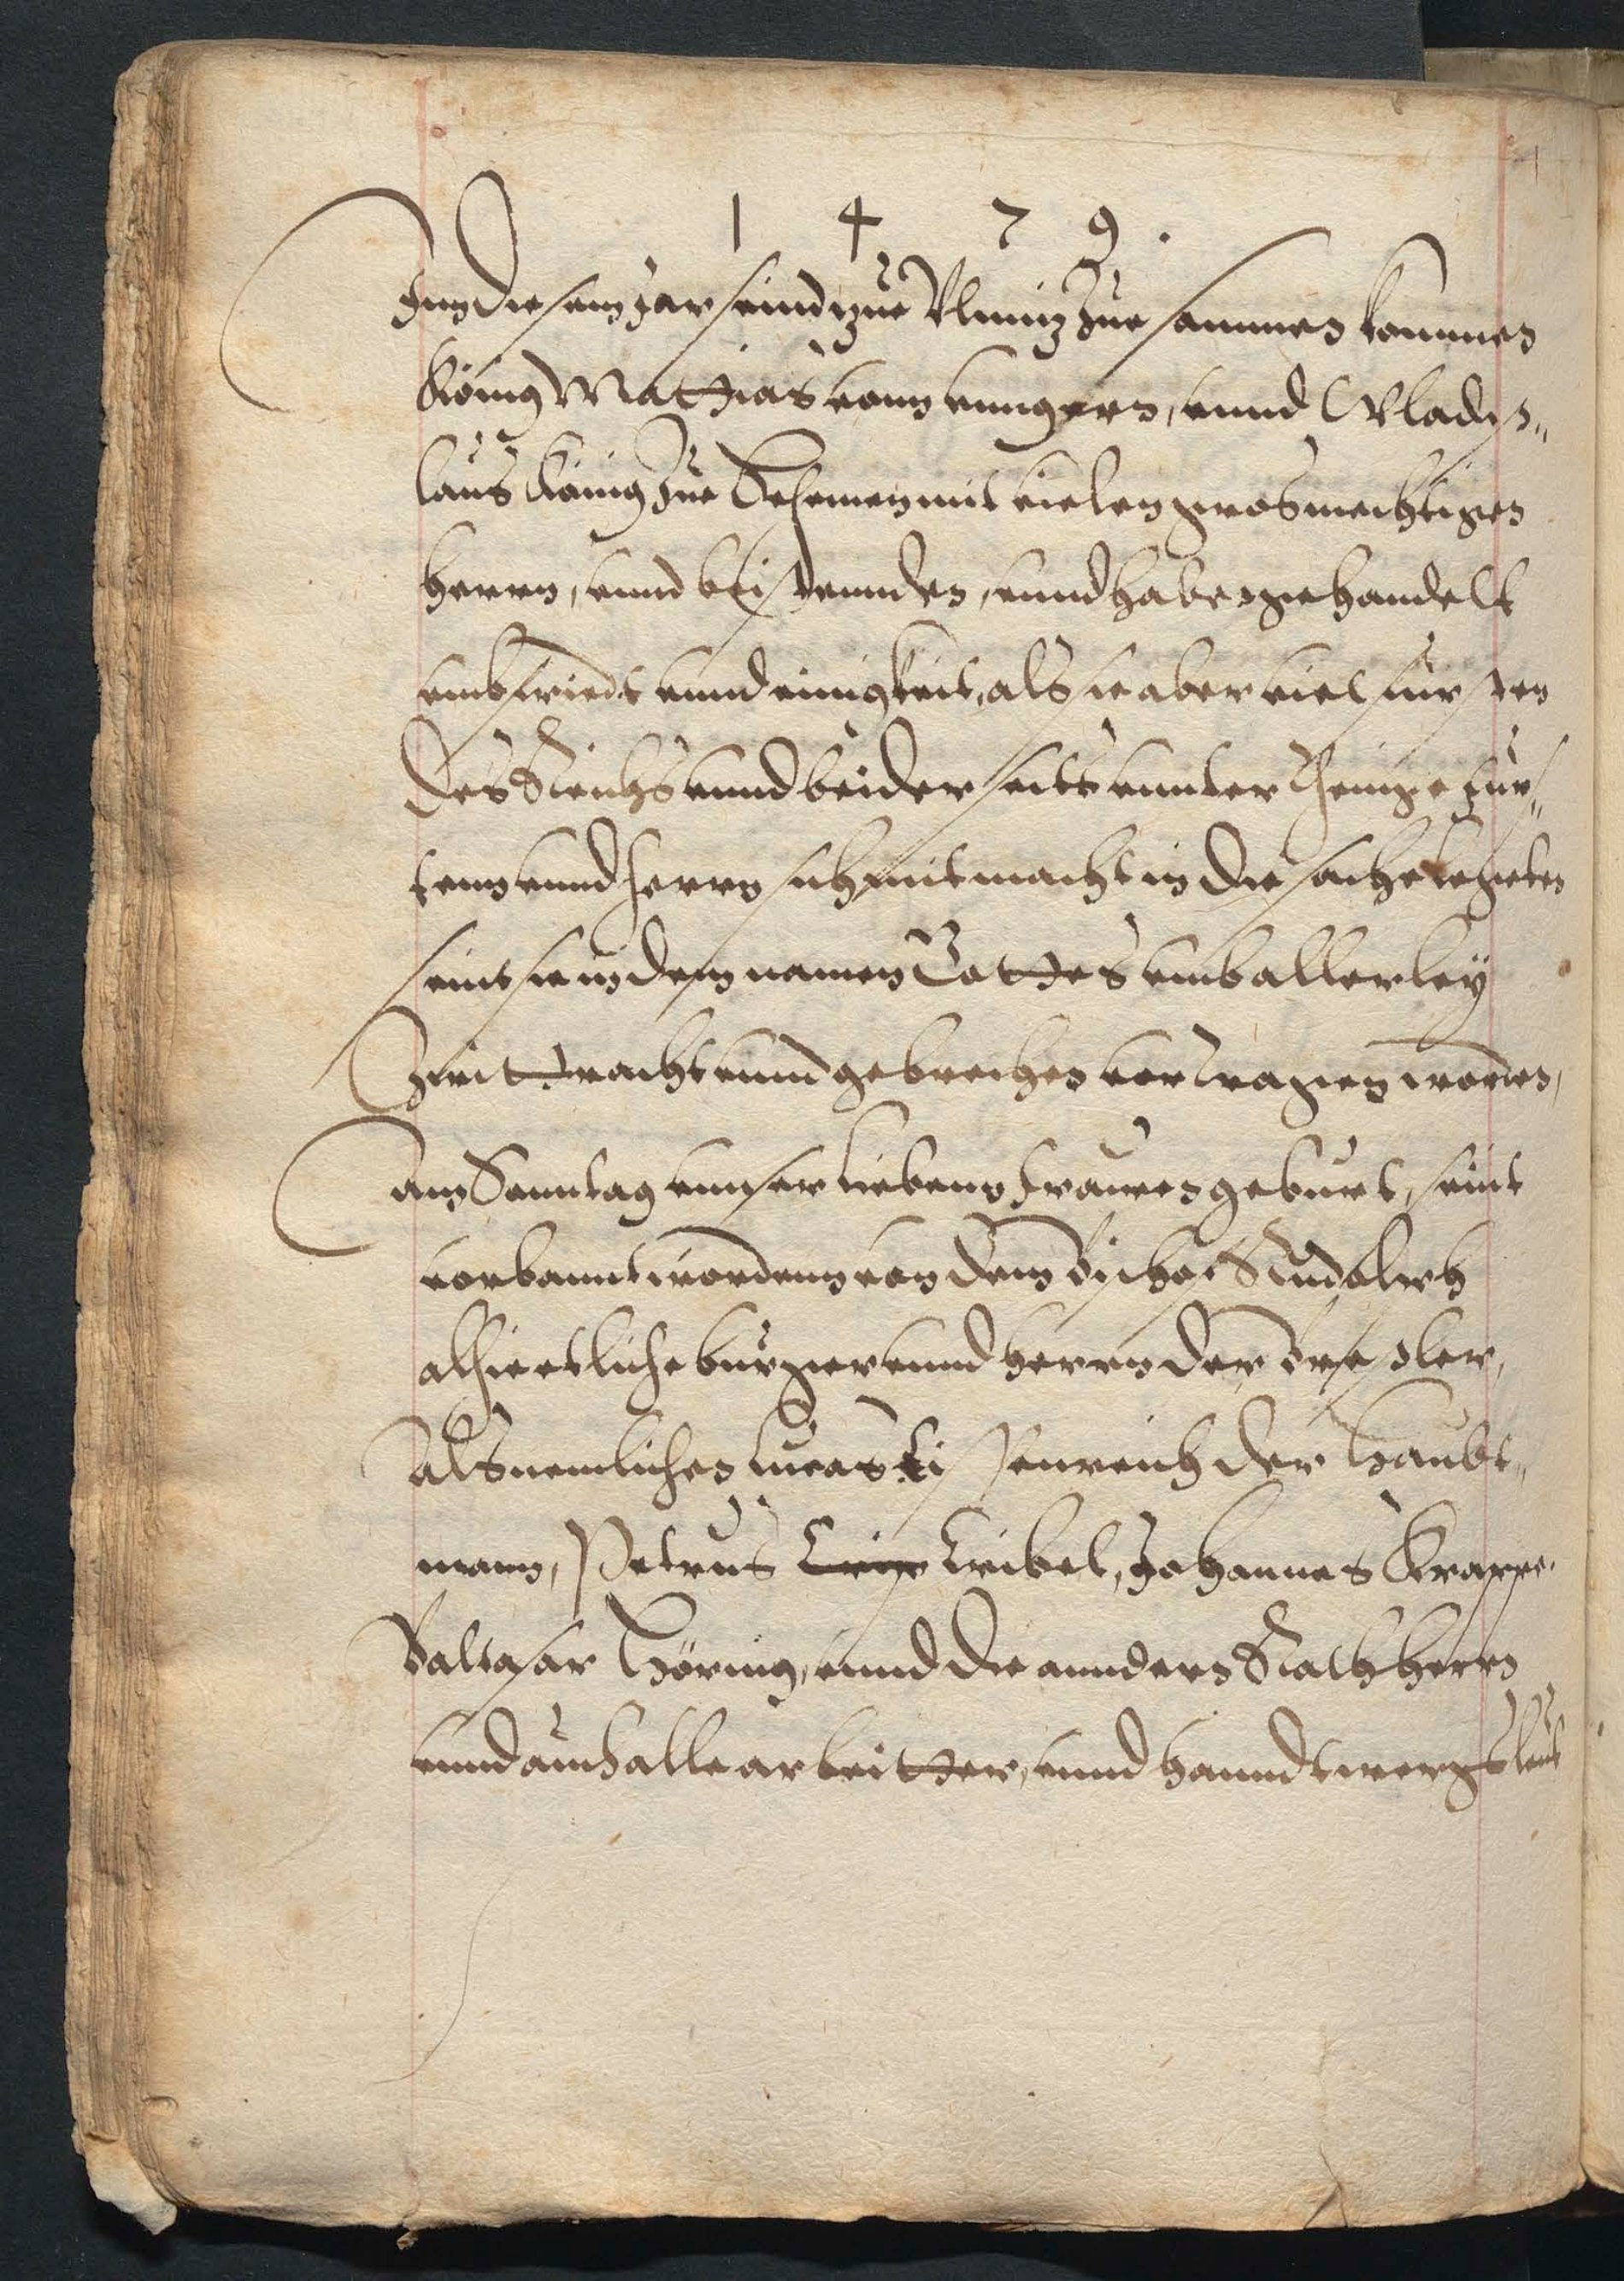 1 4 7 9.
Inn diesem Jar seind zue Olmiz zue sammen kommen
König Mattias vonn vnngern, vnnd Vladis„
laus König zue Behemen mit vielen grosmechtigen
herrn, vnnd beistennden, vnnd haben gehandelt
vmb friedt vnnd einigkeit, als sie aber viel fursten
des Reichs vnnd beiderseits vnnterthenige fürs„
tenn vnnd herrn sich mit macht in die sache legeten
seint sie in dem namen Gottes vmb allerley
Zwittracht vnnd gebrechen vertragen worden,
Am Sonntag vnnser liebenn frauen geburt, seint
verbannt wordenn von dem bischof Rudolph
alhie etliche burger vnnd herrn der Bressler,
Als nemlichen Lucas Eisenreich der Haubt„
mann, Petrus Kribel, Johannes Krappe.
Baltasar Hörnig, vnnd die anndern Rathherrn
vnnd auch alle arbeitter, vnnd hanndtwergsleut